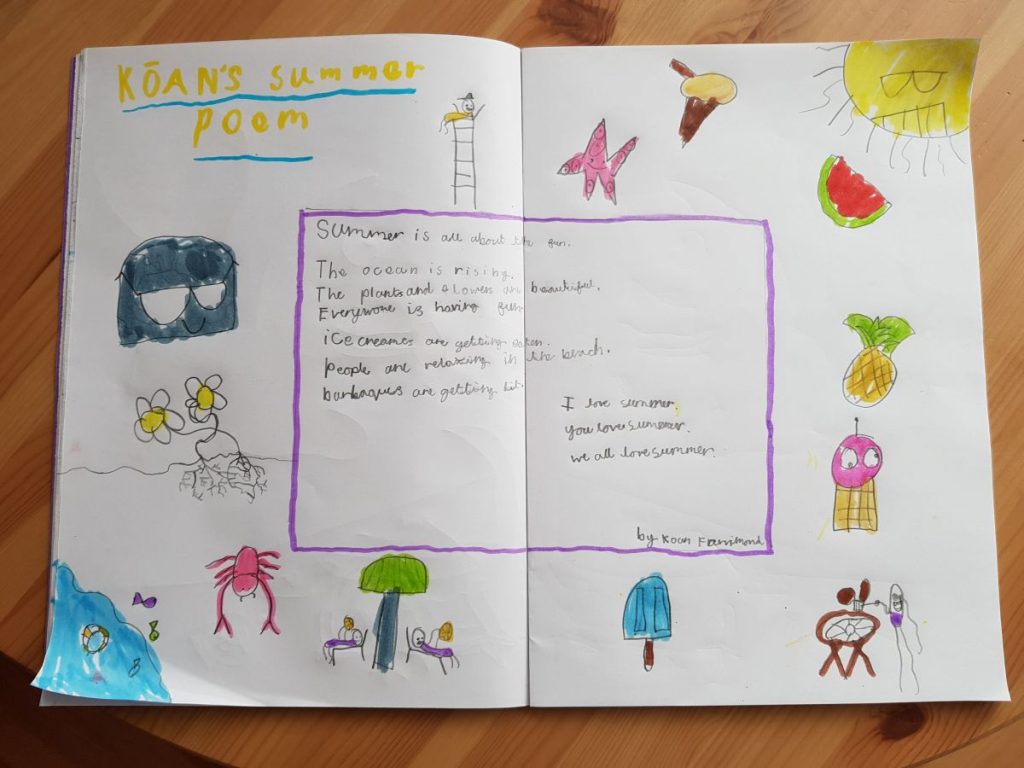 KŌAN'S summer
poem
Summer is all about the fun.
The ocean is rising.
The plants and flowers are beautiful.
Everywone is having fun.
ice creames are getting eaten.
people are relaxing in the beach.
barbaques are getting hit.
I love summer.
you love summer.
we all love summer.
by Koan